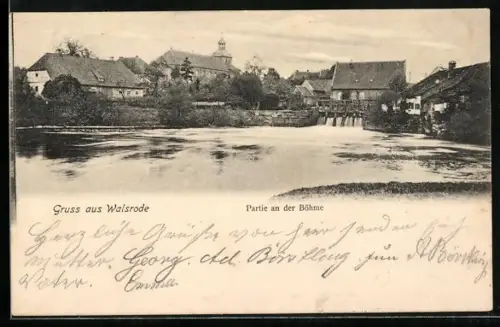 Gruss aus Walsrode
Partie an der Böhme
Herzliche Grüße von hier senden
Mutter. Georg. Ad.
Vater. Emma.